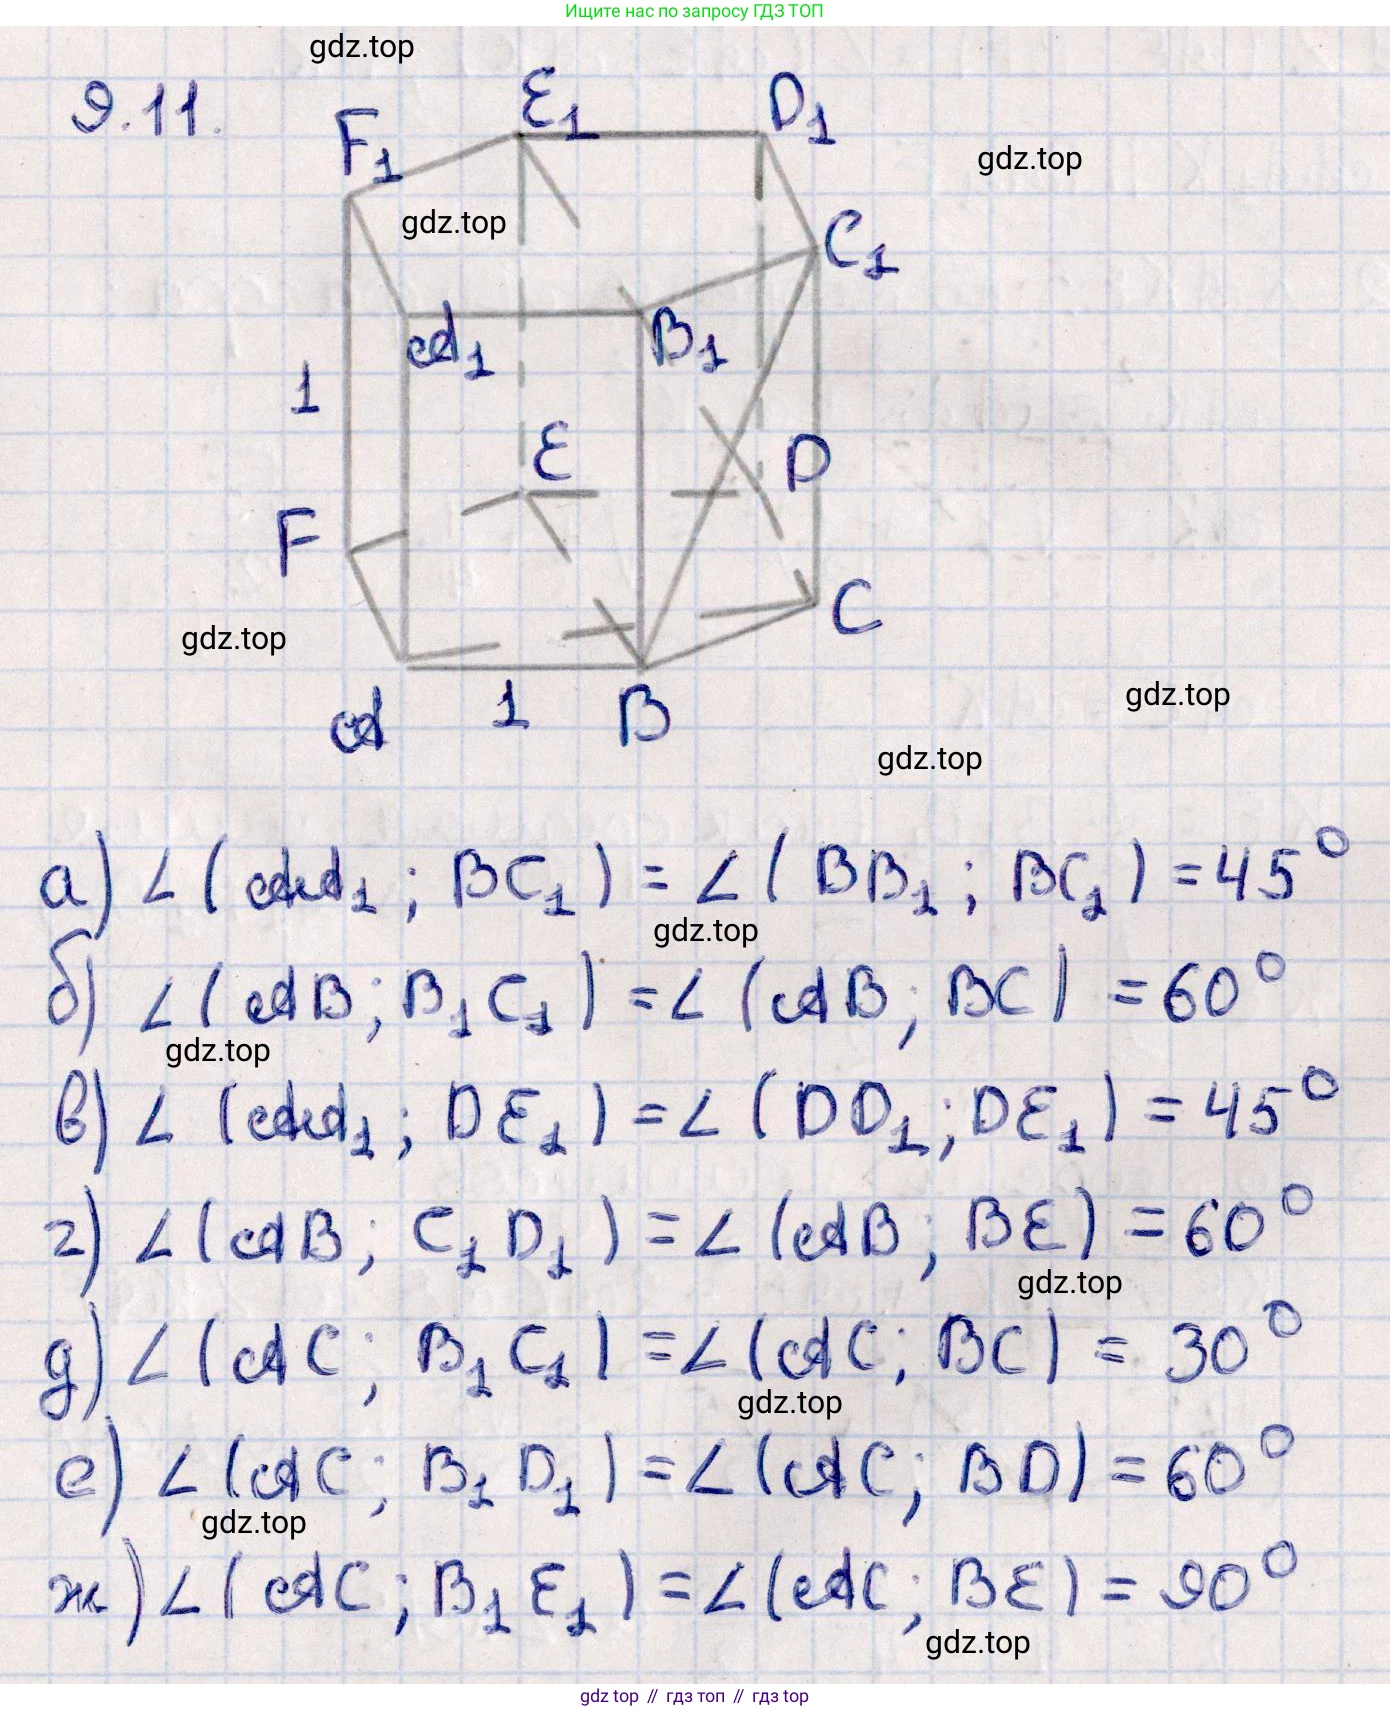 Ищите нас по запросу ГДЗ ТОП
gdz.top
9.11.
E₁
D₁
F₁
gdz.top
gdz.top
C₁
A₁
B₁
1
E
D
F
C
gdz.top
gdz.top
A
1
B
gdz.top
а) ∠(AA₁; BC₁) = ∠(BB₁; BC₁) = 45°
gdz.top
б) ∠(AB; B₁C₁) = ∠(AB; BC) = 60°
gdz.top
в) ∠(AA₁; DE₁) = ∠(DD₁; DE₁) = 45°
г) ∠(AB; C₁D₁) = ∠(AB; BE) = 60°
gdz.top
д) ∠(AC; B₁C₁) = ∠(AC; BC) = 30°
gdz.top
е) ∠(AC; B₁D₁) = ∠(AC; BD) = 60°
gdz.top
ж) ∠(AC; B₁E₁) = ∠(AC; BE) = 90°
gdz.top
gdz top // гдз топ // гдз top